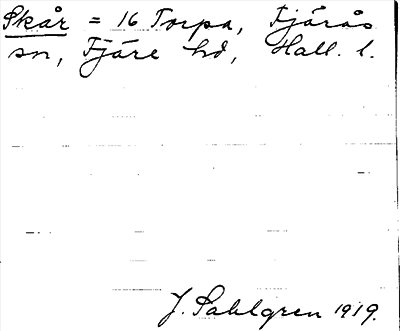 Skår = 16 Torpa, Fjärås
sn, Fjäre hd, Hall. l.
J. Sahlgren 1919.